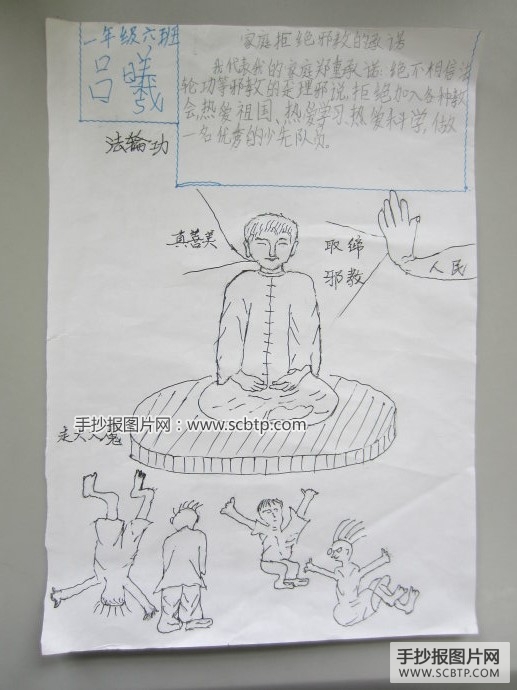 一年级六班
吕曦
家庭拒绝邪教的承诺
我代表我的家庭郑重承诺:绝不相信法
轮功等邪教的歪理邪说,拒绝加入各种教
会,热爱祖国、热爱学习、热爱科学,做
一名优秀的少先队员。
法轮功
真善美
取缔
邪教
人民
手抄报图片网:www.scbtp.com
走火入魔
手抄报图片网
WWW.SCBTP.COM